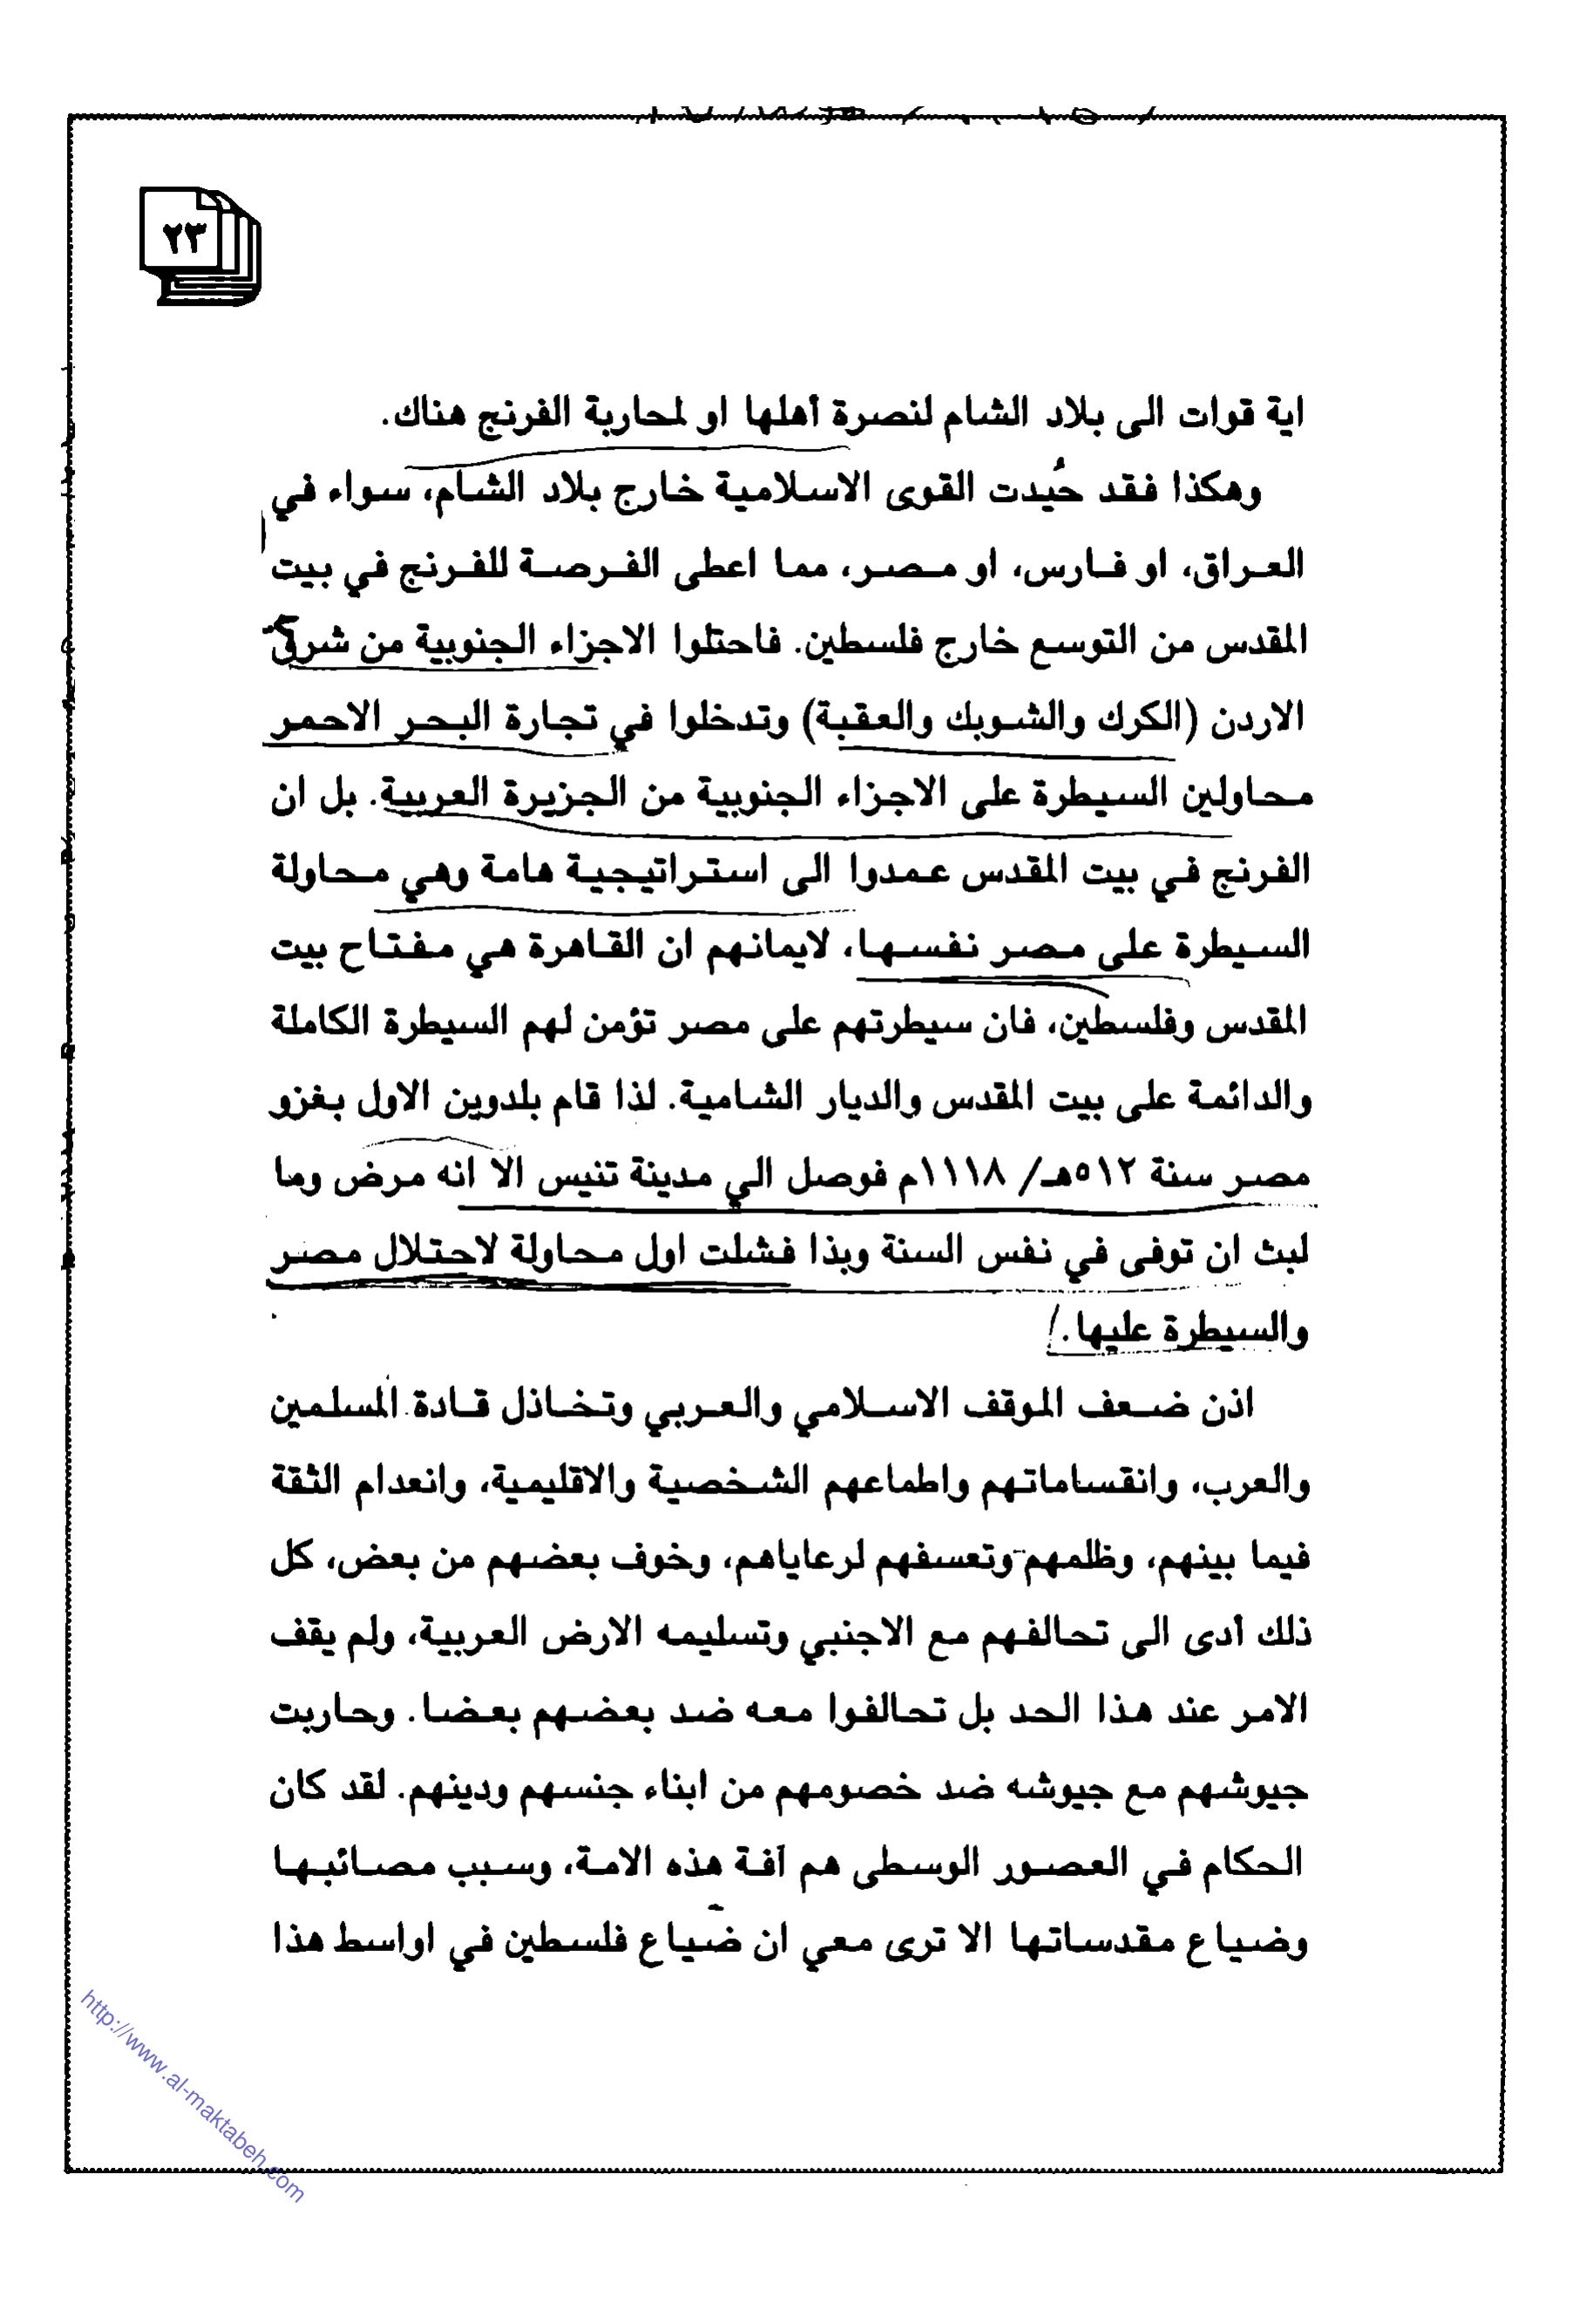 ٢٣
اية قوات الى بلاد الشام لنصرة أهلها او لمحاربة الفرنج هناك.
وهكذا فقد حُيدت القوى الاسلامية خارج بلاد الشام، سواء في
العراق، او فارس، او مصر، مما اعطى الفرصة للفرنج في بيت
المقدس من التوسع خارج فلسطين. فاحتلوا الاجزاء الجنوبية من شرقي
الاردن (الكرك والشوبك والعقبة) وتدخلوا في تجارة البحر الاحمر
محاولين السيطرة على الاجزاء الجنوبية من الجزيرة العربية. بل ان
الفرنج في بيت المقدس عمدوا الى استراتيجية هامة وهي محاولة
السيطرة على مصر نفسها، لايمانهم ان القاهرة هي مفتاح بيت
المقدس وفلسطين، فان سيطرتهم على مصر تؤمن لهم السيطرة الكاملة
والدائمة على بيت المقدس والديار الشامية. لذا قام بلدوين الاول بغزو
مصر سنة ٥١٢هـ/ ١١١٨م فوصل الي مدينة تنيس الا انه مرض وما
لبث ان توفى في نفس السنة وبذا فشلت اول محاولة لاحتلال مصر
والسيطرة عليها.
اذن ضعف الموقف الاسلامي والعربي وتخاذل قادة المسلمين
والعرب، وانقساماتهم واطماعهم الشخصية والاقليمية، وانعدام الثقة
فيما بينهم، وظلمهم وتعسفهم لرعاياهم، وخوف بعضهم من بعض، كل
ذلك أدى الى تحالفهم مع الاجنبي وتسليمه الارض العربية، ولم يقف
الامر عند هذا الحد بل تحالفوا معه ضد بعضهم بعضا. وحاربت
جيوشهم مع جيوشه ضد خصومهم من ابناء جنسهم ودينهم. لقد كان
الحكام في العصور الوسطى هم آفة هذه الامة، وسبب مصائبها
وضياع مقدساتها الا ترى معي ان ضياع فلسطين في اواسط هذا
http://www.al-maktabeh.com